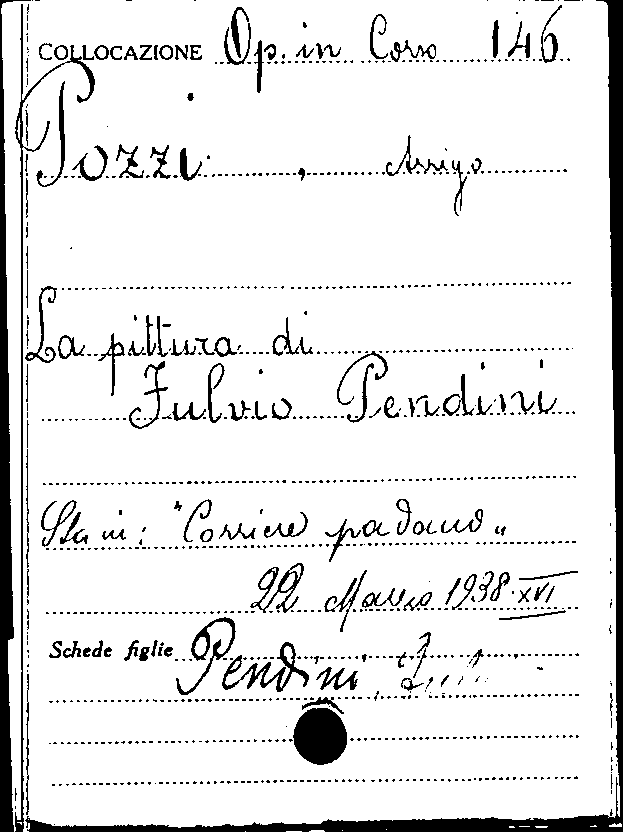 COLLOCAZIONE Op. in Corso 146
Pozzi, Arrigo
La pittura di
Fulvio Pendini
Sta in: "Corriere padano"
22 Marzo 1938·XVI
Schede figlie Pendini,